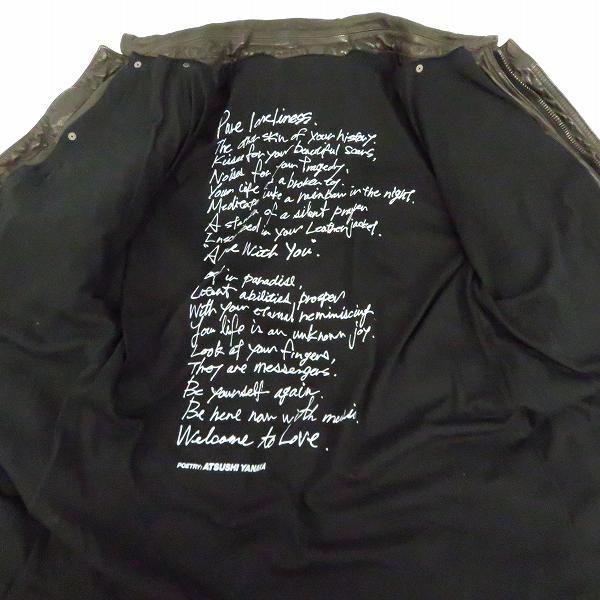 Pure loneliness.
The dark skin of your history.
Kisses for your beautiful scars,
Noises for your Tragedy,
Your life is a broken toy.
Meditate into a rainbow in the night.
A of a silent prayer
in your Leatherjacket.
Are With You"
in paradise,
Latent abilities prosper
With your eternal reminiscing
Your life is an unknown joy.
Look at your fingers,
They are messengers.
Be yourself again.
Be here now with music.
Welcome to Love.
POETRY: ATSUSHI YANAKA